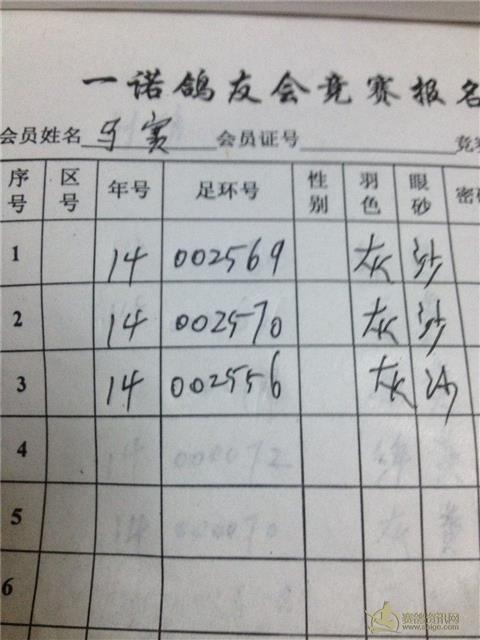 一诺鸽友会竞赛报名
会员姓名 马赛 会员证号 竞赛
序号 区号 年号 足环号 性别 羽色 眼砂 密
1 14 002569 灰 沙
2 14 002570 灰 沙
3 14 002556 灰 沙
4 14 000072
5 14 000070 灰 黄
6
赛鸽资讯网